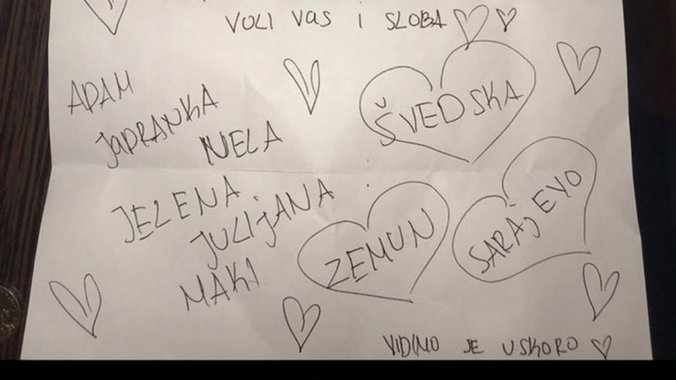 VOLI VAS I SLOBA
ADAM
JADRANKA
NELA
ŠVEDSKA
JELENA
JULIJANA
MAKI
ZEMUN
SARAJEVO
VIDIMO SE USKORO